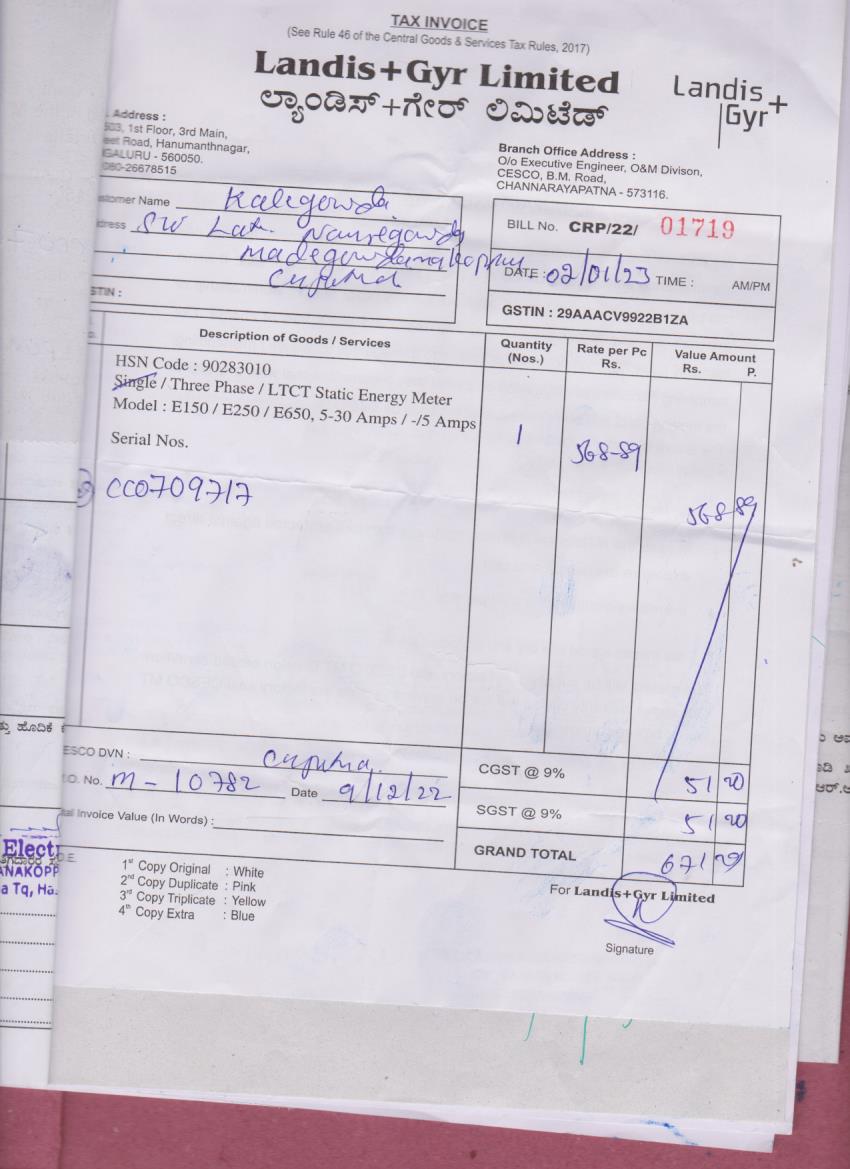 TAX INVOICE
(See Rule 46 of the Central Goods & Services Tax Rules, 2017)
Landis+Gyr Limited
ಲ್ಯಾಂಡಿಸ್+ಗೇರ್ ಲಿಮಿಟೆಡ್
Landis+
Gyr
Address :
1st Floor, 3rd Main,
Road, Hanumanthnagar,
- 560050.
080-26678515
Branch Office Address :
O/o Executive Engineer, O&M Divison,
CESCO, B.M. Road,
CHANNARAYAPATNA - 573116.
Customer Name Kalegowda
S/o Late
BILL No. CRP/22/ 01719
DATE : 02/01/23 TIME : AM/PM
GSTIN : 29AAACV9922B1ZA
Description of Goods / Services
Quantity (Nos.)
Rate per Pc Rs.
Value Amount Rs. P.
HSN Code : 90283010
Single / Three Phase / LTCT Static Energy Meter
Model : E150 / E250 / E650, 5-30 Amps / -/5 Amps
Serial Nos.
1
568-89
568-89
CC0709717
DVN :
No. M-10782 Date 9/12/22
Invoice Value (In Words) :
CGST @ 9% 51 20
SGST @ 9% 51 20
GRAND TOTAL 671 29
1st Copy Original : White
2nd Copy Duplicate : Pink
3rd Copy Triplicate : Yellow
4th Copy Extra : Blue
For Landis+Gyr Limited
Signature
ಹೊದಿಕೆ
Elect
ANAKOPP
a Tq, Ha